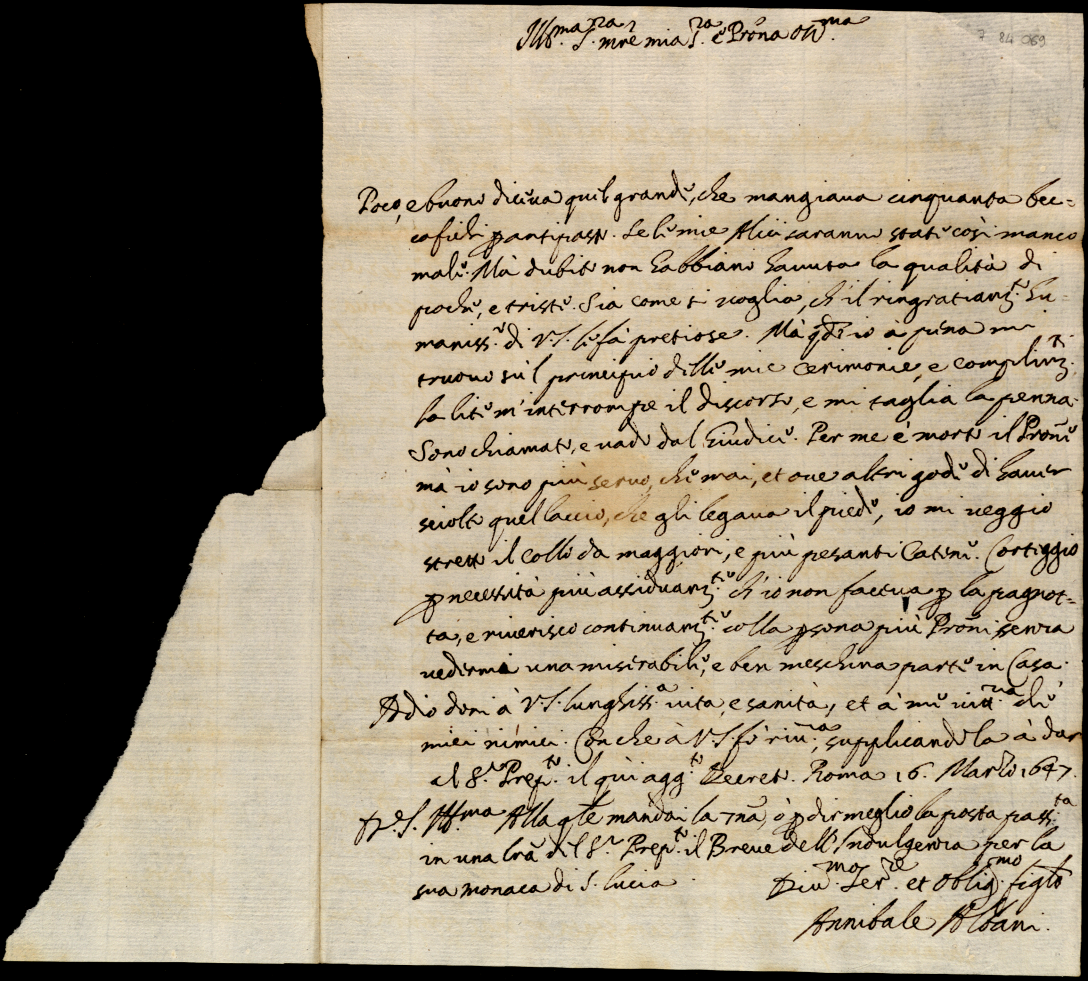 Ill.ma S.ra mrē mia S.ra e Pr̄ona Oss.ma
7 84 069
Poco, e buono diceva quel grande, che mangiava cinquanta bec=
cafichi p antipasto. Se le mie Alici saranno state così manco
male. Mà dubito non habbiano havuta la qualità di
poche, e triste. Sia come si voglia, ch'il ringratiam.to hu=
maniss.o di V.S. le fà pretiose. Mà qdō io à pena mi
truovo sù'l principio delle mie cerimonie, e complim.ti
la lite m'interrompe il discorso, e mi taglia la penna.
Sono chiamato, e vado dal Giudice. Per me è morto il Pron̄e
mà io sono più servo, che mai, et ove altri gode di haver
sciolto quel laccio, che gli legava il piede, io mi veggio
stretto il collo da maggiori, e più pesanti Catene. Corteggio
p necessità più assiduam.te ch'io non faceva p la pagnot=
ta, e riverisco continuam.te colla psona più Pron̄i senza
vedermi una miserabile, e ben meschina parte in Casa.
Adio doni à V.S. lunghiss.a vita, e sanità, et à me vitt.ria de'
miei nimici. Con che à V.S. fò riv.za, supplicandola à dar
al S.r Pref.to il quì agg.to Decreto. Roma 16. Marzo 1647.
Di V.S. Ill.ma Alla qle mandai la 7na, ò p dir meglio la posta pass.ta
in una lrā del S.r Pref.to il Breve dell'Indulgenza per la
sua monaca di S. Lucia.
Div.mo Ser.re et Oblig.mo figlo
Annibale Albani.